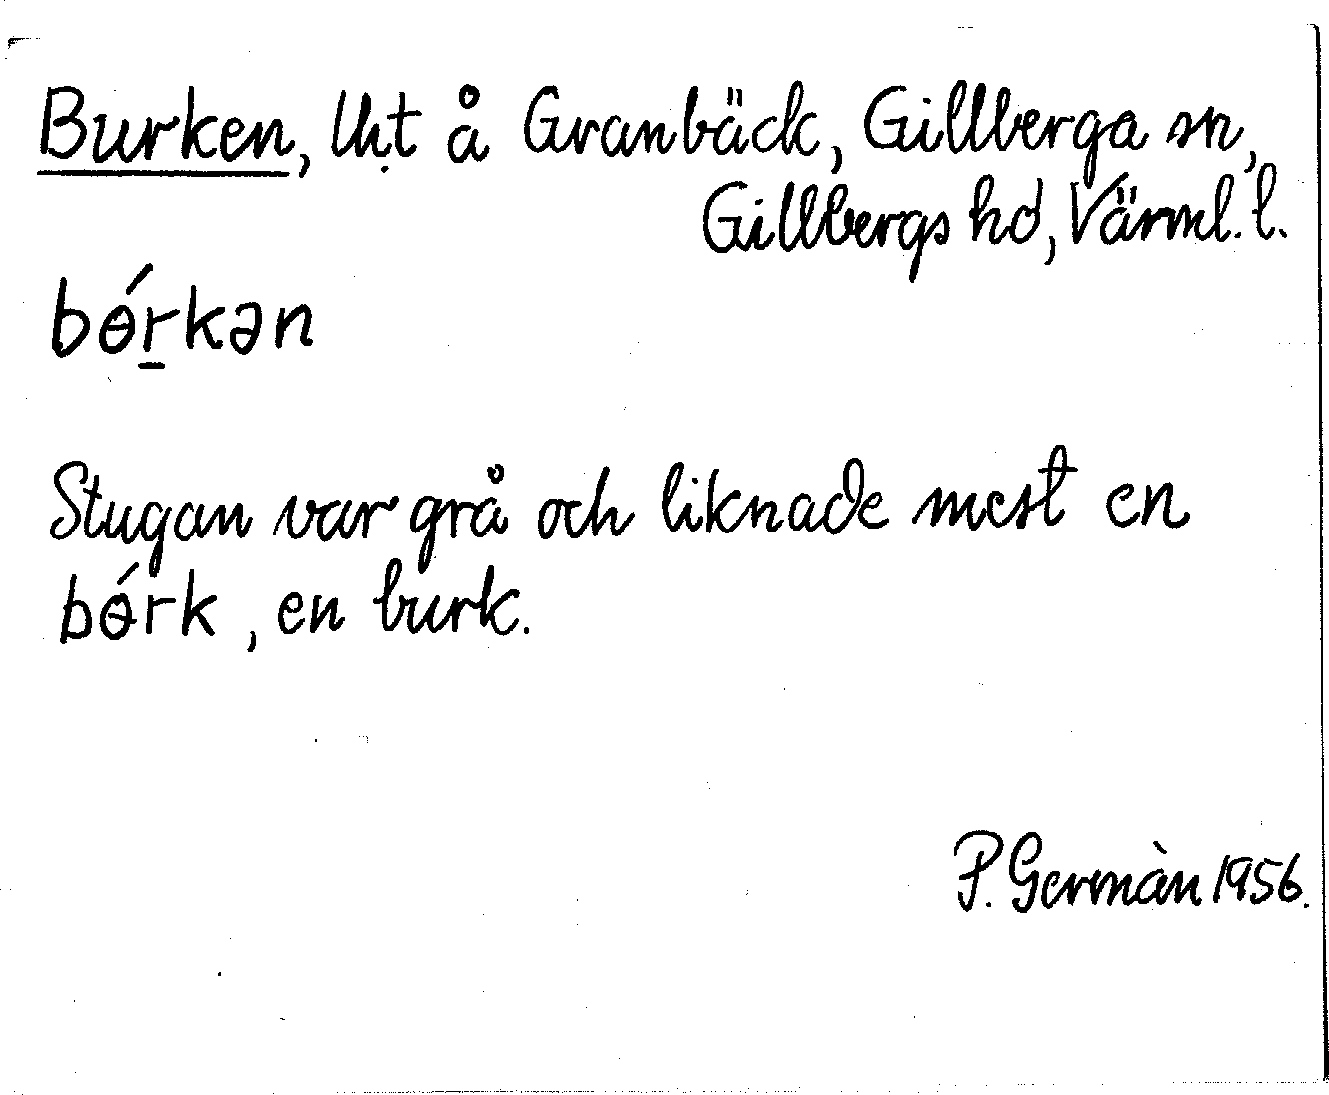 Burken, lht å Granbäck, Gillberga sn,
Gillbergs hd, Värml. l.
bɵ́r̠kən
Stugan var grå och liknade mest en
bɵ́rk, en burk.
P. Germàn 1956.